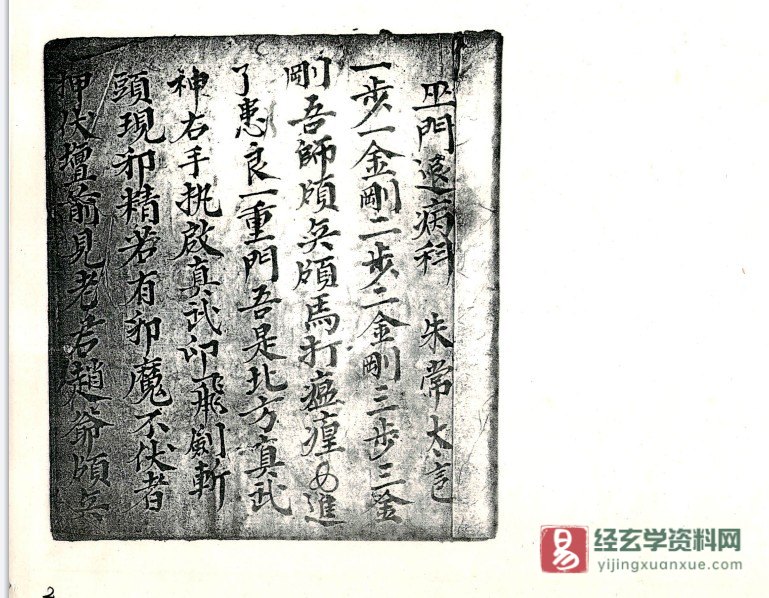 巫門退病科 朱常太
一步一金剛二步二金剛三步三金
剛吾師頒兵頒馬打瘟𤶊进
了患良一重門吾是北方真武
神右手执啟真武印飛劍斬
頭現邪精若有邪魔不伏者
押伏壇前見老君趙爺頒兵
易
经玄学资料网
yijingxuanxue.com
2